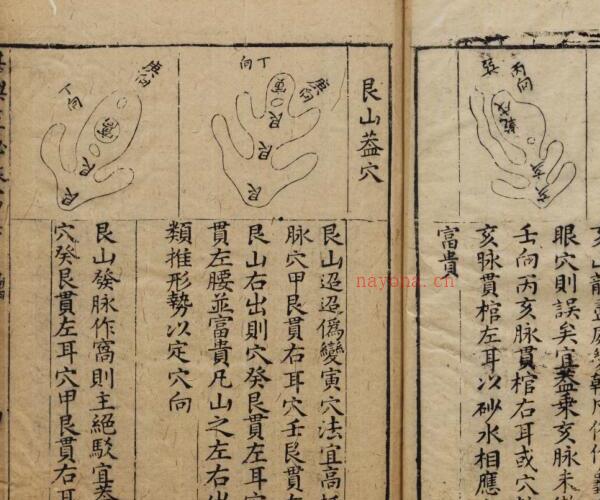 巽
丙向
乾戌
亥
亥
眼穴則誤矣宜葢乗亥脉未
壬向丙亥脉貫棺右耳或穴
亥脉貫棺左耳以砂水相應
富貴
艮山葢穴
丁向
庚向
寅
艮
艮
艮
艮山迢迢偽變寅穴法宜高
脉穴甲艮貫右耳穴壬艮貫左
艮山右出則穴癸艮貫左耳
貫左腰並富貴凡山之左右出
類推形勢以定穴向
庚向
丁向
艮
艮
艮山發脉作窩則主絶駁宜葢
穴癸艮貫左耳穴甲艮貫右耳
nayona.cn